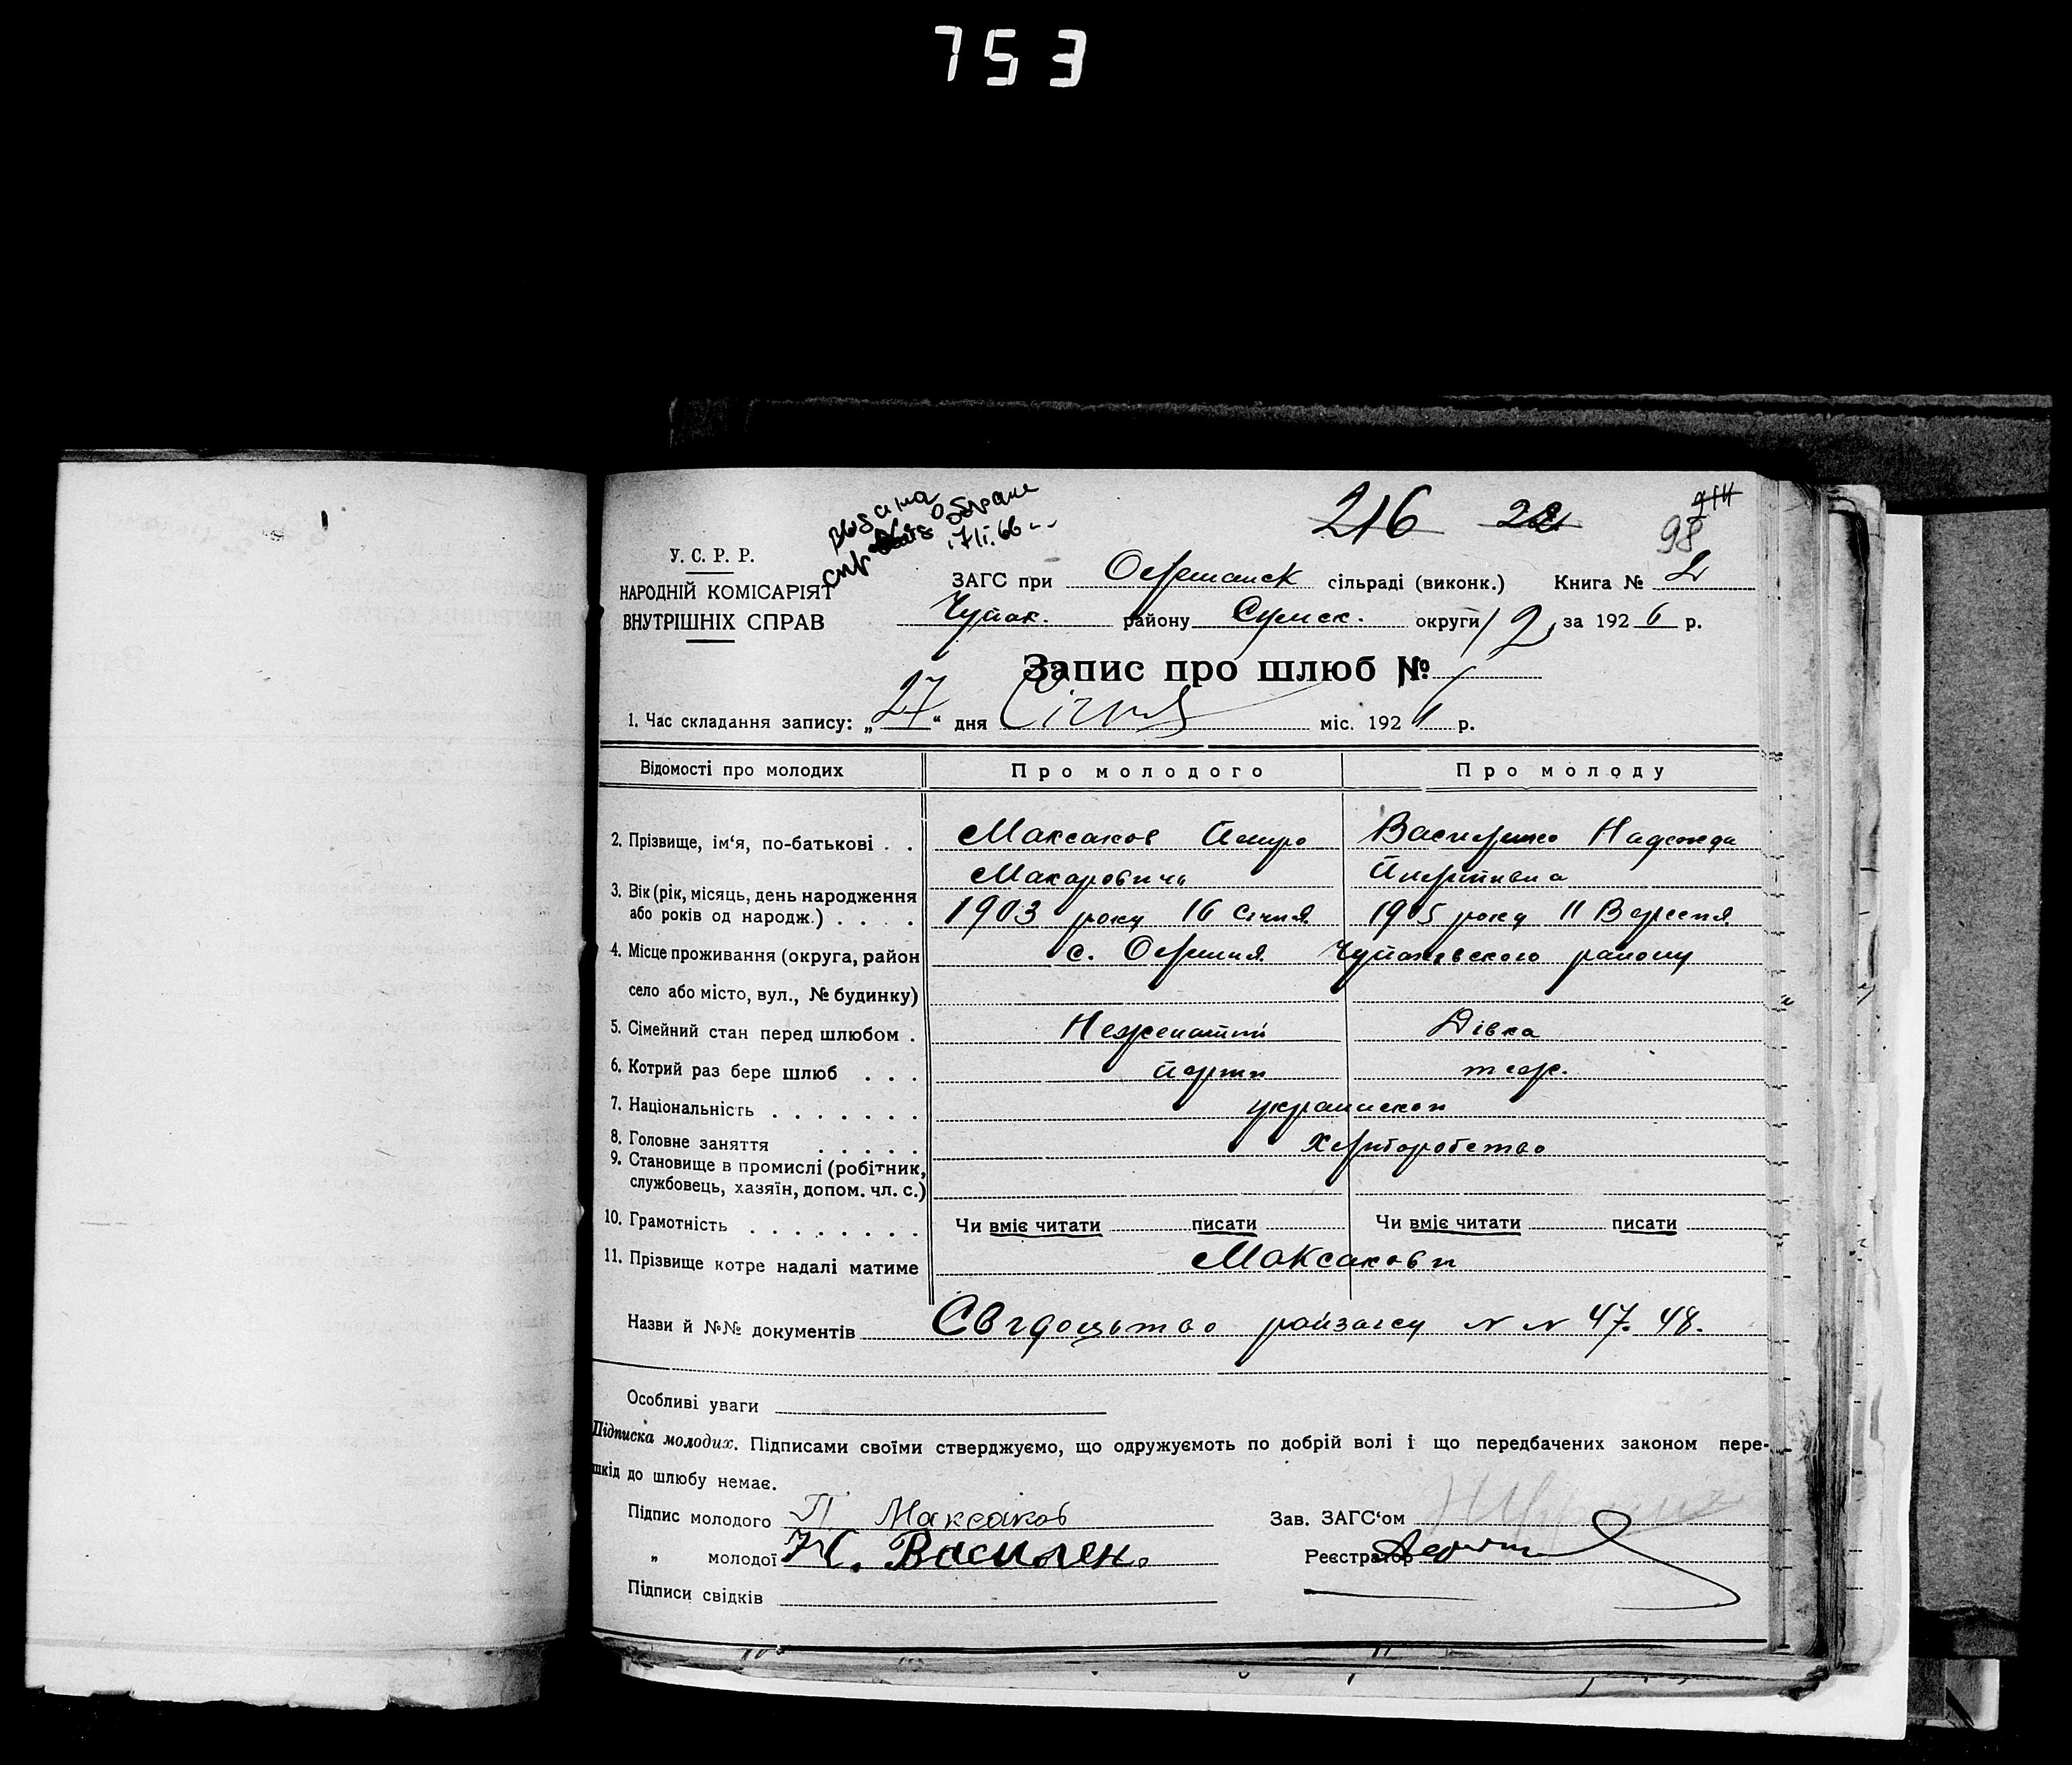 753
216
98
видана
17/I.66
У. С. Р. Р.
НАРОДНІЙ КОМІСАРІЯТ
ВНУТРІШНІХ СПРАВ
ЗАГС при сільраді (виконк.) Книга № 2
Чупах. району Сумск. округи за 1926 р.
Запис про шлюб №
12
1. Час складання запису: „27“ дня Січня міс. 192 р.
Відомості про молодих Про молодого Про молоду
2. Прізвище, ім‘я, по-батькові . . Максаков Петро Василенко Надежда
Макарович Пилипивна
3. Вік (рік, місяць, день народження
або років од народж.) . . . . 1903 року 16 Січня 1905 року 11 Вересня
4. Місце проживання (округа, район с. Олешня Чупаховского району
село або місто, вул., № будинку)
5. Сімейний стан перед шлюбом . Неженатий Дівка
6. Котрий раз бере шлюб . . . перши теж.
7. Національність . . . . . . . украинской
8. Головне заняття . . . . . Хлиборобство
9. Становище в промислі (робітник,
службовець, хазяїн, допом. чл. с.)
10. Грамотність . . . . . . . Чи вміє читати писати Чи вміє читати писати
11. Прізвище котре надалі матиме Максакови
Назви й №№ документів Свідоцьтво райзагсу N N 47. 48.
Особливі уваги
Підписка молодих. Підписами своїми стверджуємо, що одружуємоть по добрій волі і що передбачених законом пере-
шкід до шлюбу немає.
Підпис молодого П Максаков Зав. ЗАГС‘ом
„ молодої Н. Василен. Реєстратор
Підписи свідків